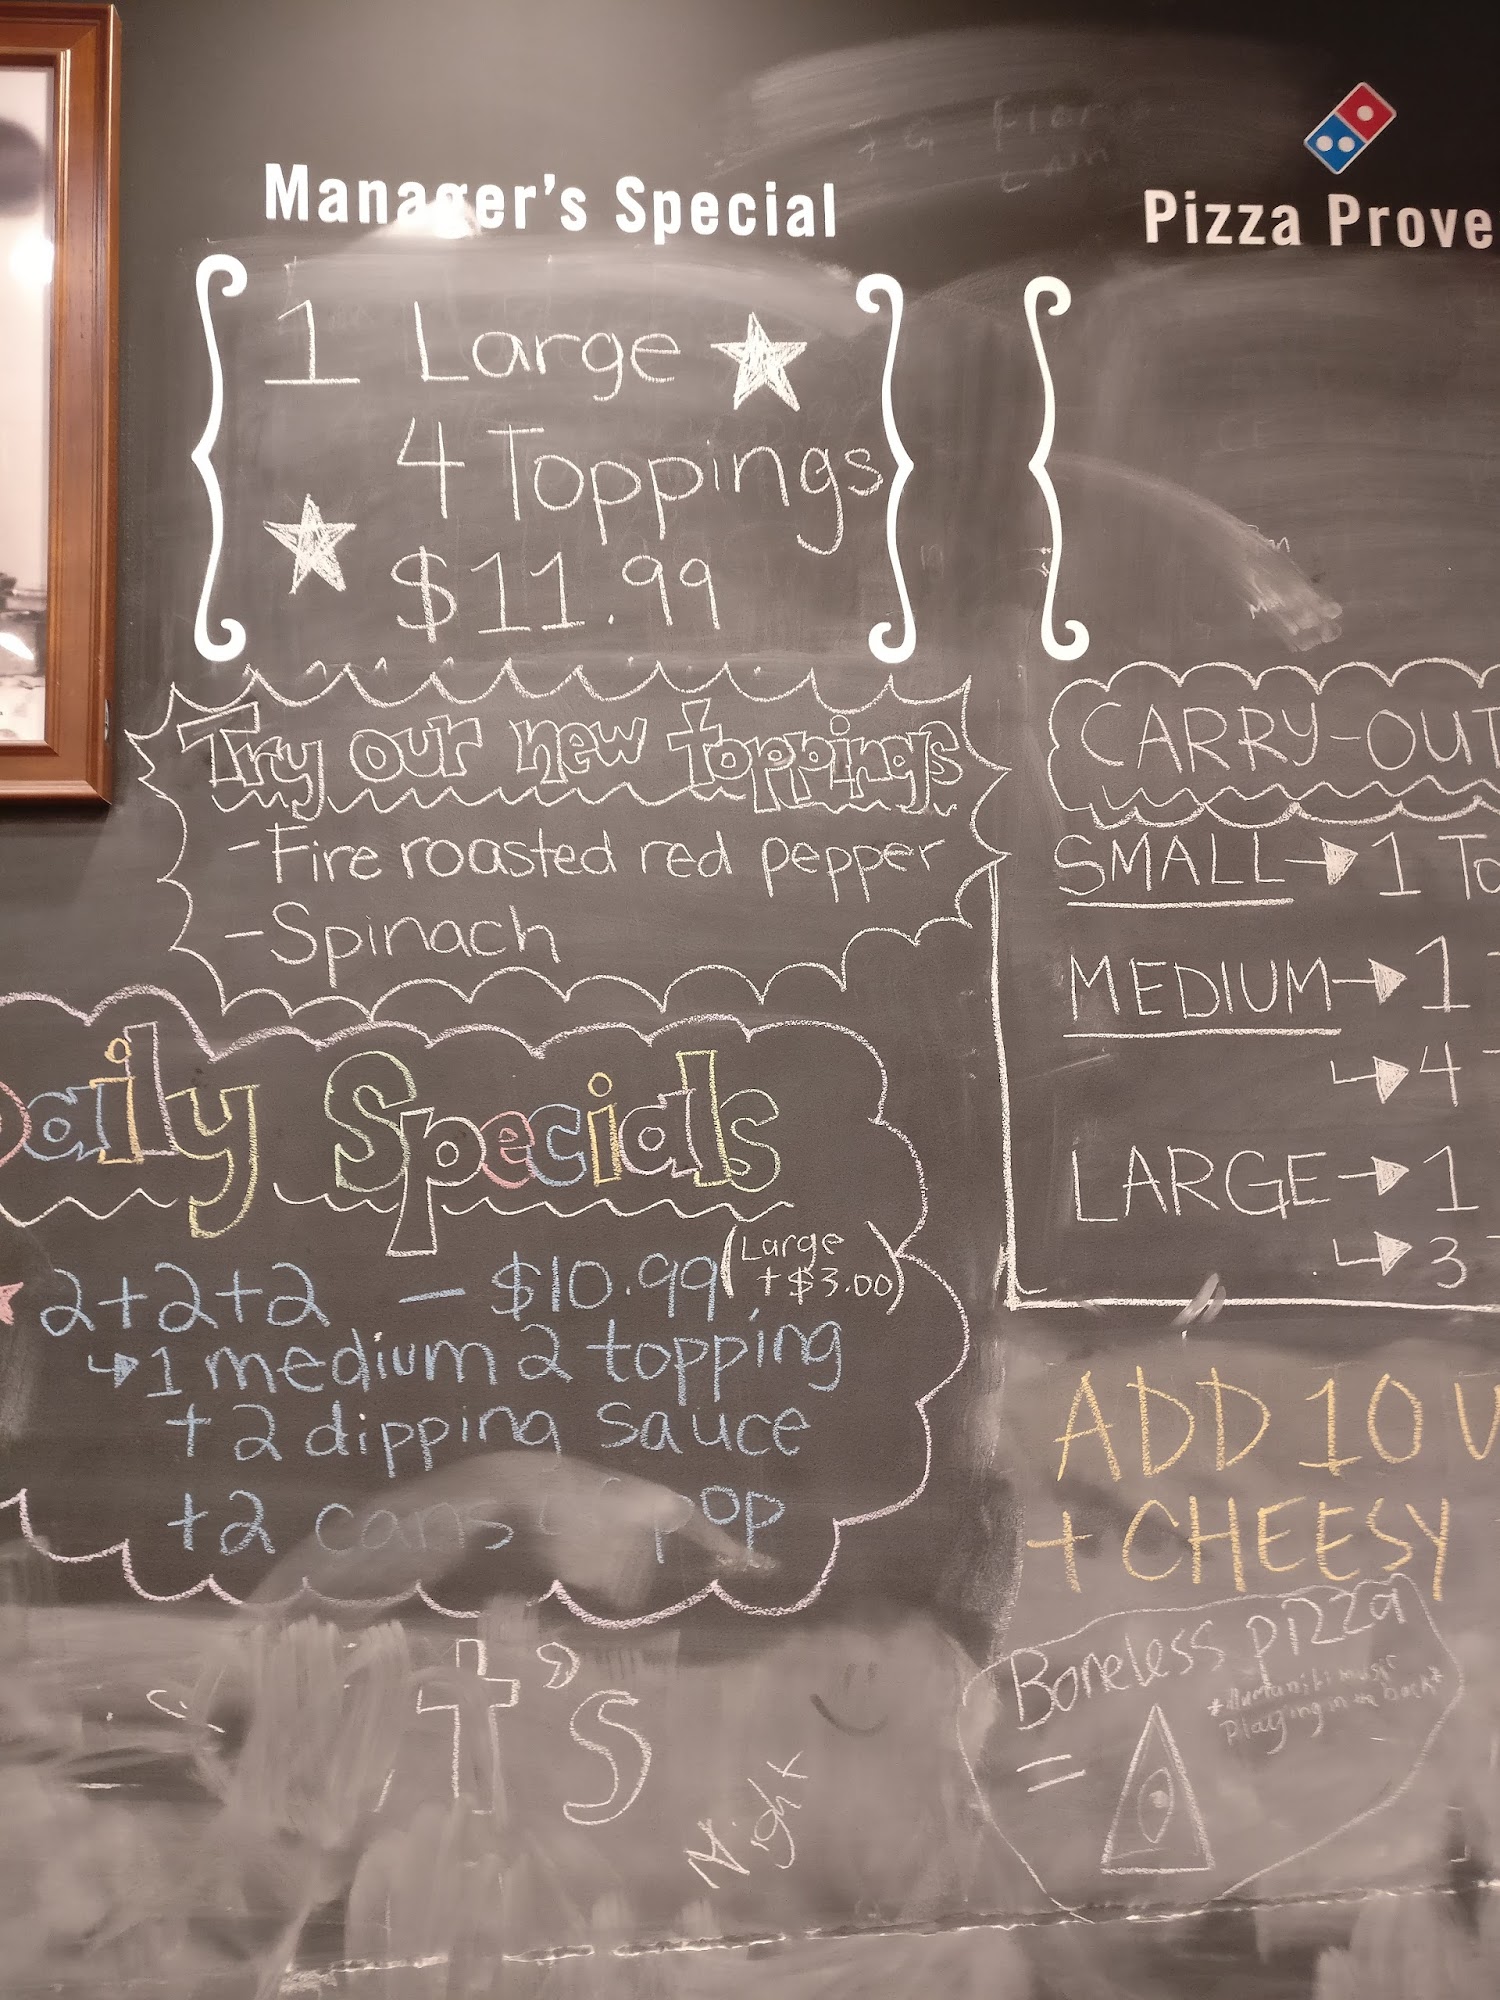 Manager's Special
1 Large
4 Toppings
$11.99
Try our new toppings
-Fire roasted red pepper
-Spinach
Daily Specials
2+2+2 - $10.99 (Large + $3.00)
1 medium 2 topping
+ 2 dipping sauce
+2 cans of pop
t's
Night
Pizza Prove
CARRY-OUT
SMALL → 1 To
MEDIUM → 1
4
LARGE → 1
3
ADD 10 W
+ CHEESY
Boneless pizza
playing in the back*
=